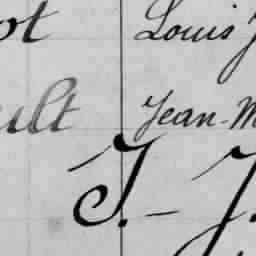 ot Louis J
ult Jean-M
J. - J.